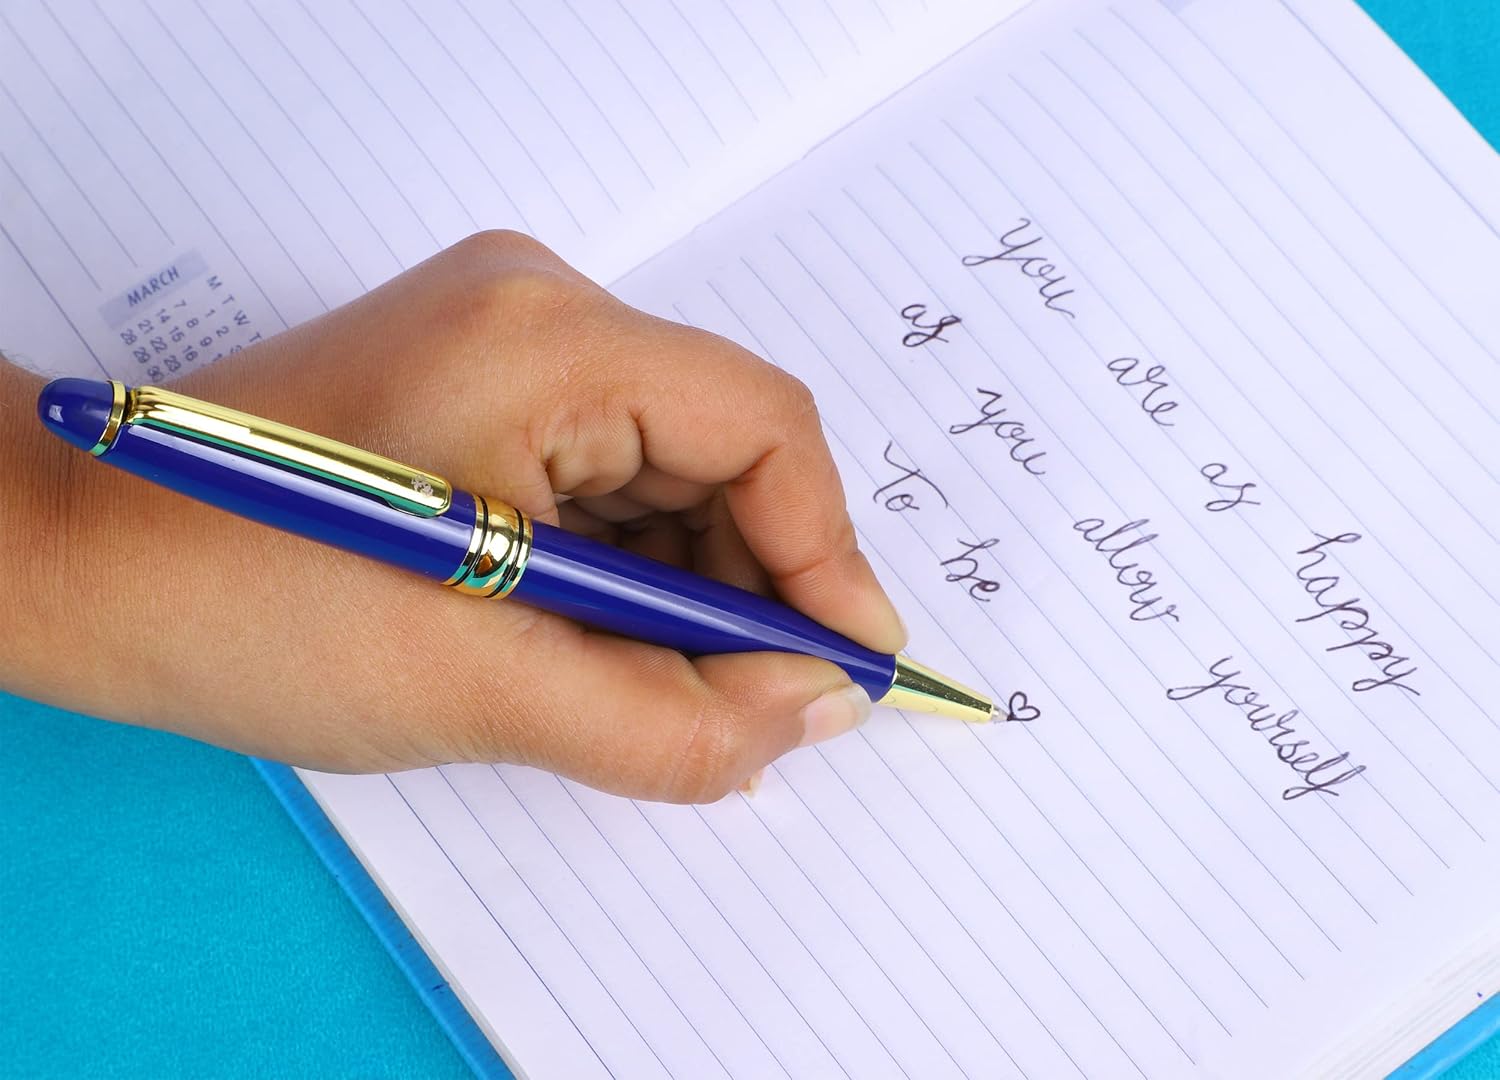 you are as happy
as you allow yourself
To be
MARCH
M 7 14 21 28
T 1 8 15 22 29
W 2 9 16 23 30
T